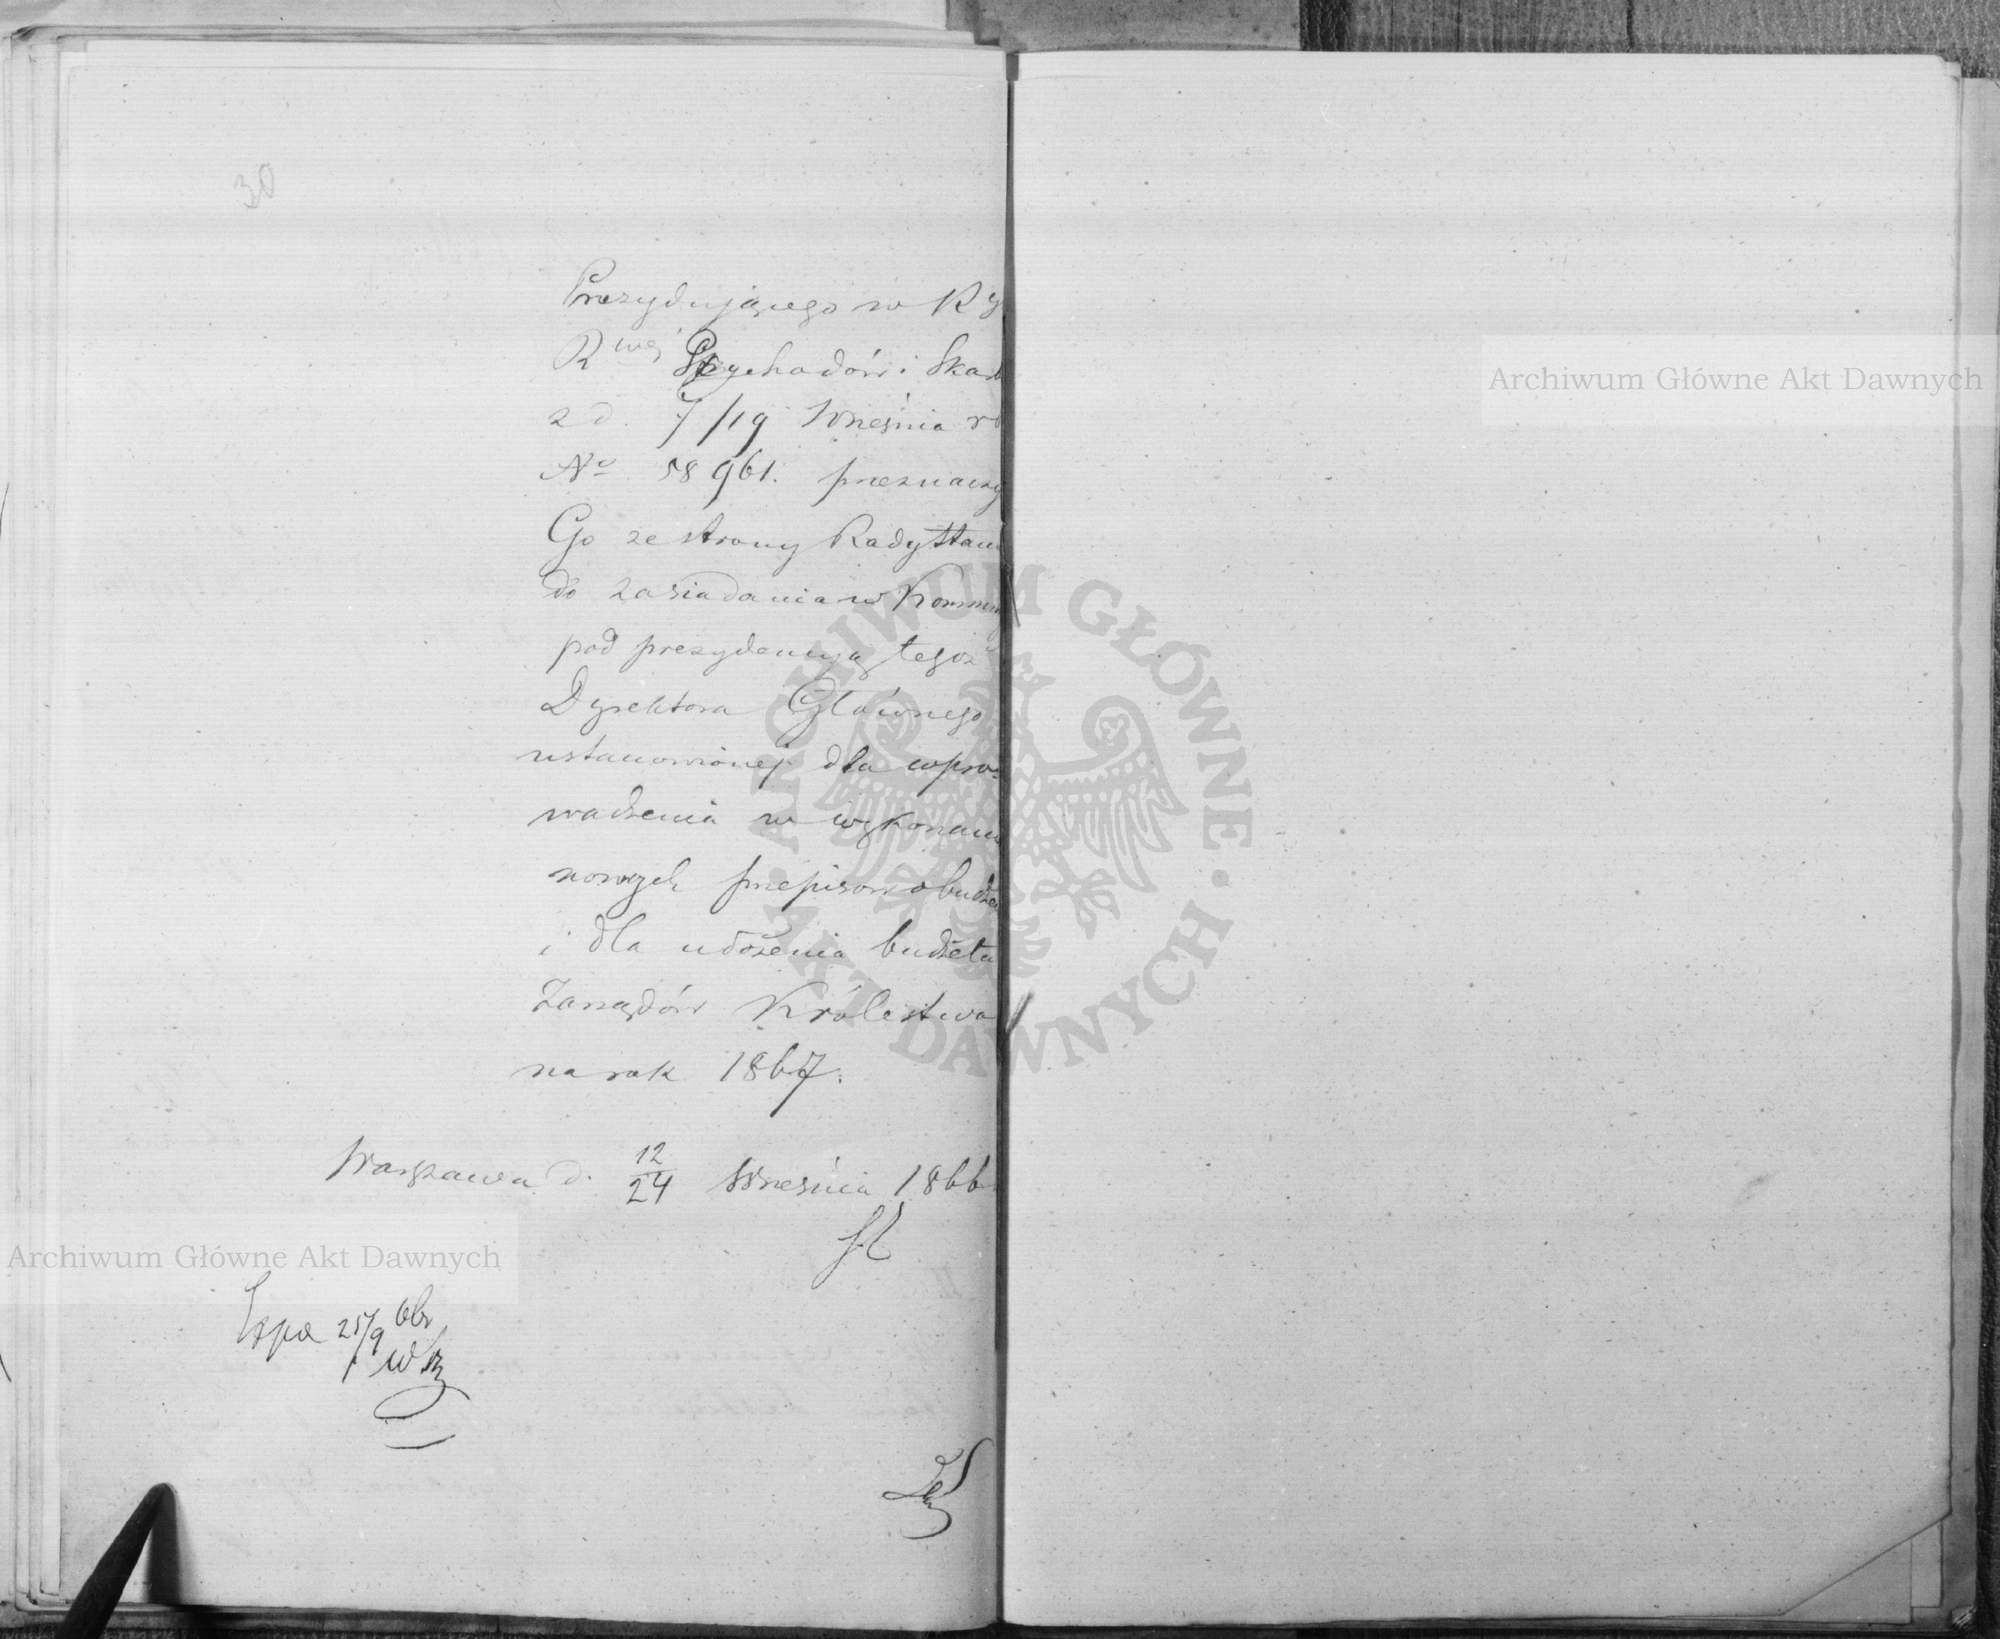 30
Prezydującego w K
R wej Przychodów i Skar
z d. 7/19 Września r
No 58961. przeznaczy
Go ze strony Rady Stan
do zasiadania w Kommi
pod prezydencyą tegoż
Dyrektora Głównego
ustanowionej dla wpro-
wadzenia w wykonani
nowych przepisów o budże
i dla ułożenia budżetu
Zarządów Królestwa
na rok 1867.
Warszawa d. 12/24 Września 1866
Exp 25/9 66
Archiwum Główne Akt Dawnych
Archiwum Główne Akt Dawnych
ARCHIWUM GŁÓWNE AKT DAWNYCH